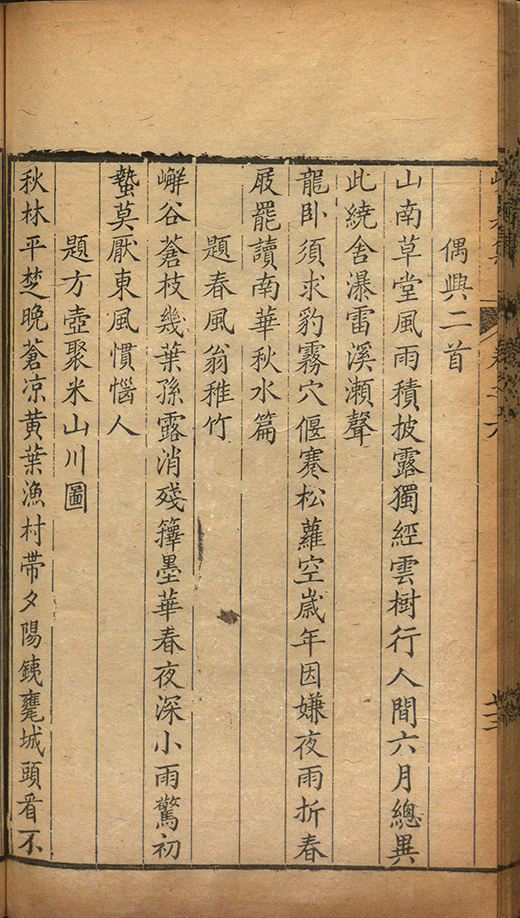 偶興二首
山南草堂風雨積披露獨經雲樹行人間六月總異
此繞舍瀑雷溪瀬聲
龍卧須求豹霧穴偃蹇松蘿空歲年因嫌夜雨折春
屐罷讀南華秋水篇
題春風翁稚竹
嶰谷蒼枝幾葉孫露消殘籜墨華春夜深小雨驚初
蟄莫厭東風慣惱人
題方壺聚米山川圖
秋林平楚晚蒼凉黄葉漁村帶夕陽銕甕城頭看不